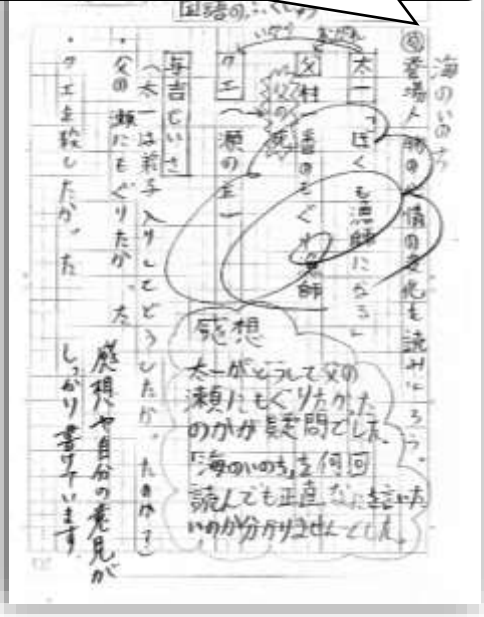 国語のふくしゅう
海のいのち
登場人物の心情の変化を読みとろう。
太一「ぼくも漁師になる」
あこがれ
いかり
父 村一番のもぐり漁師
父の死
クエ（瀬の主）
与吉じいさ
（太一は弟子入りしてどうしたかったのか？）
・父の瀬にもぐりたかった
・クエを殺したかった
感想
太一がどうして父の
瀬にもぐりたかった
のかが疑問でした。
「海のいのち」を何回
読んでも正直なにを言いた
いのか分かりませんでした。
感想や自分の意見が
しっかり書けています